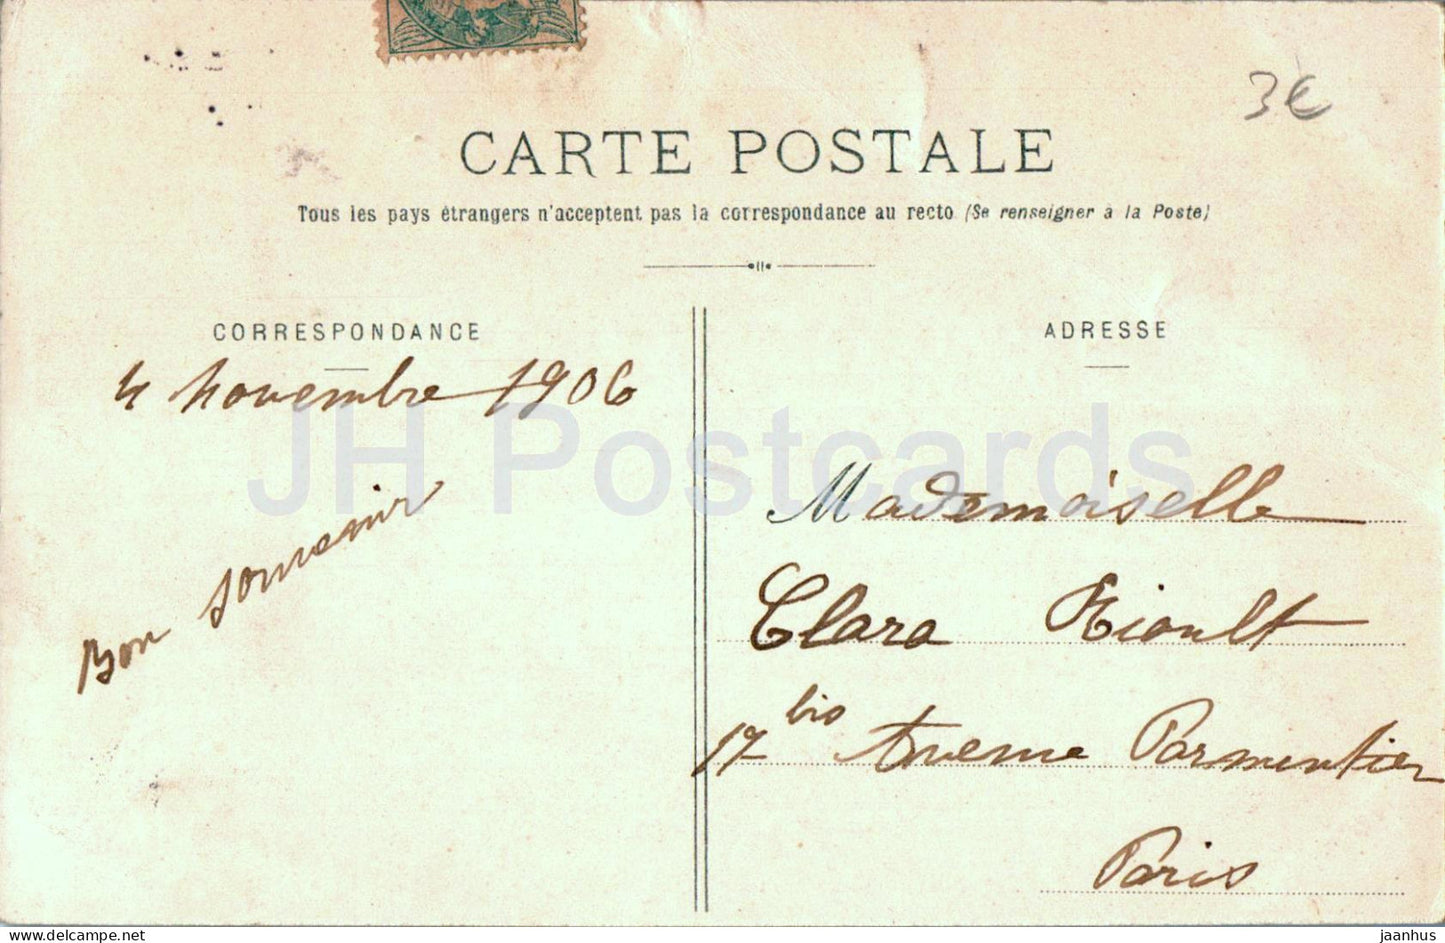 3€
CARTE POSTALE
Tous les pays étrangers n'acceptent pas la correspondance au recto (Se renseigner à la Poste)
CORRESPONDANCE
4 novembre 1906
Bon souvenir
ADRESSE
Mademoiselle
Clara Rioult
17 bis Avenue Parmentier
Paris
JH Postcards
www.delcampe.net
jaanhus